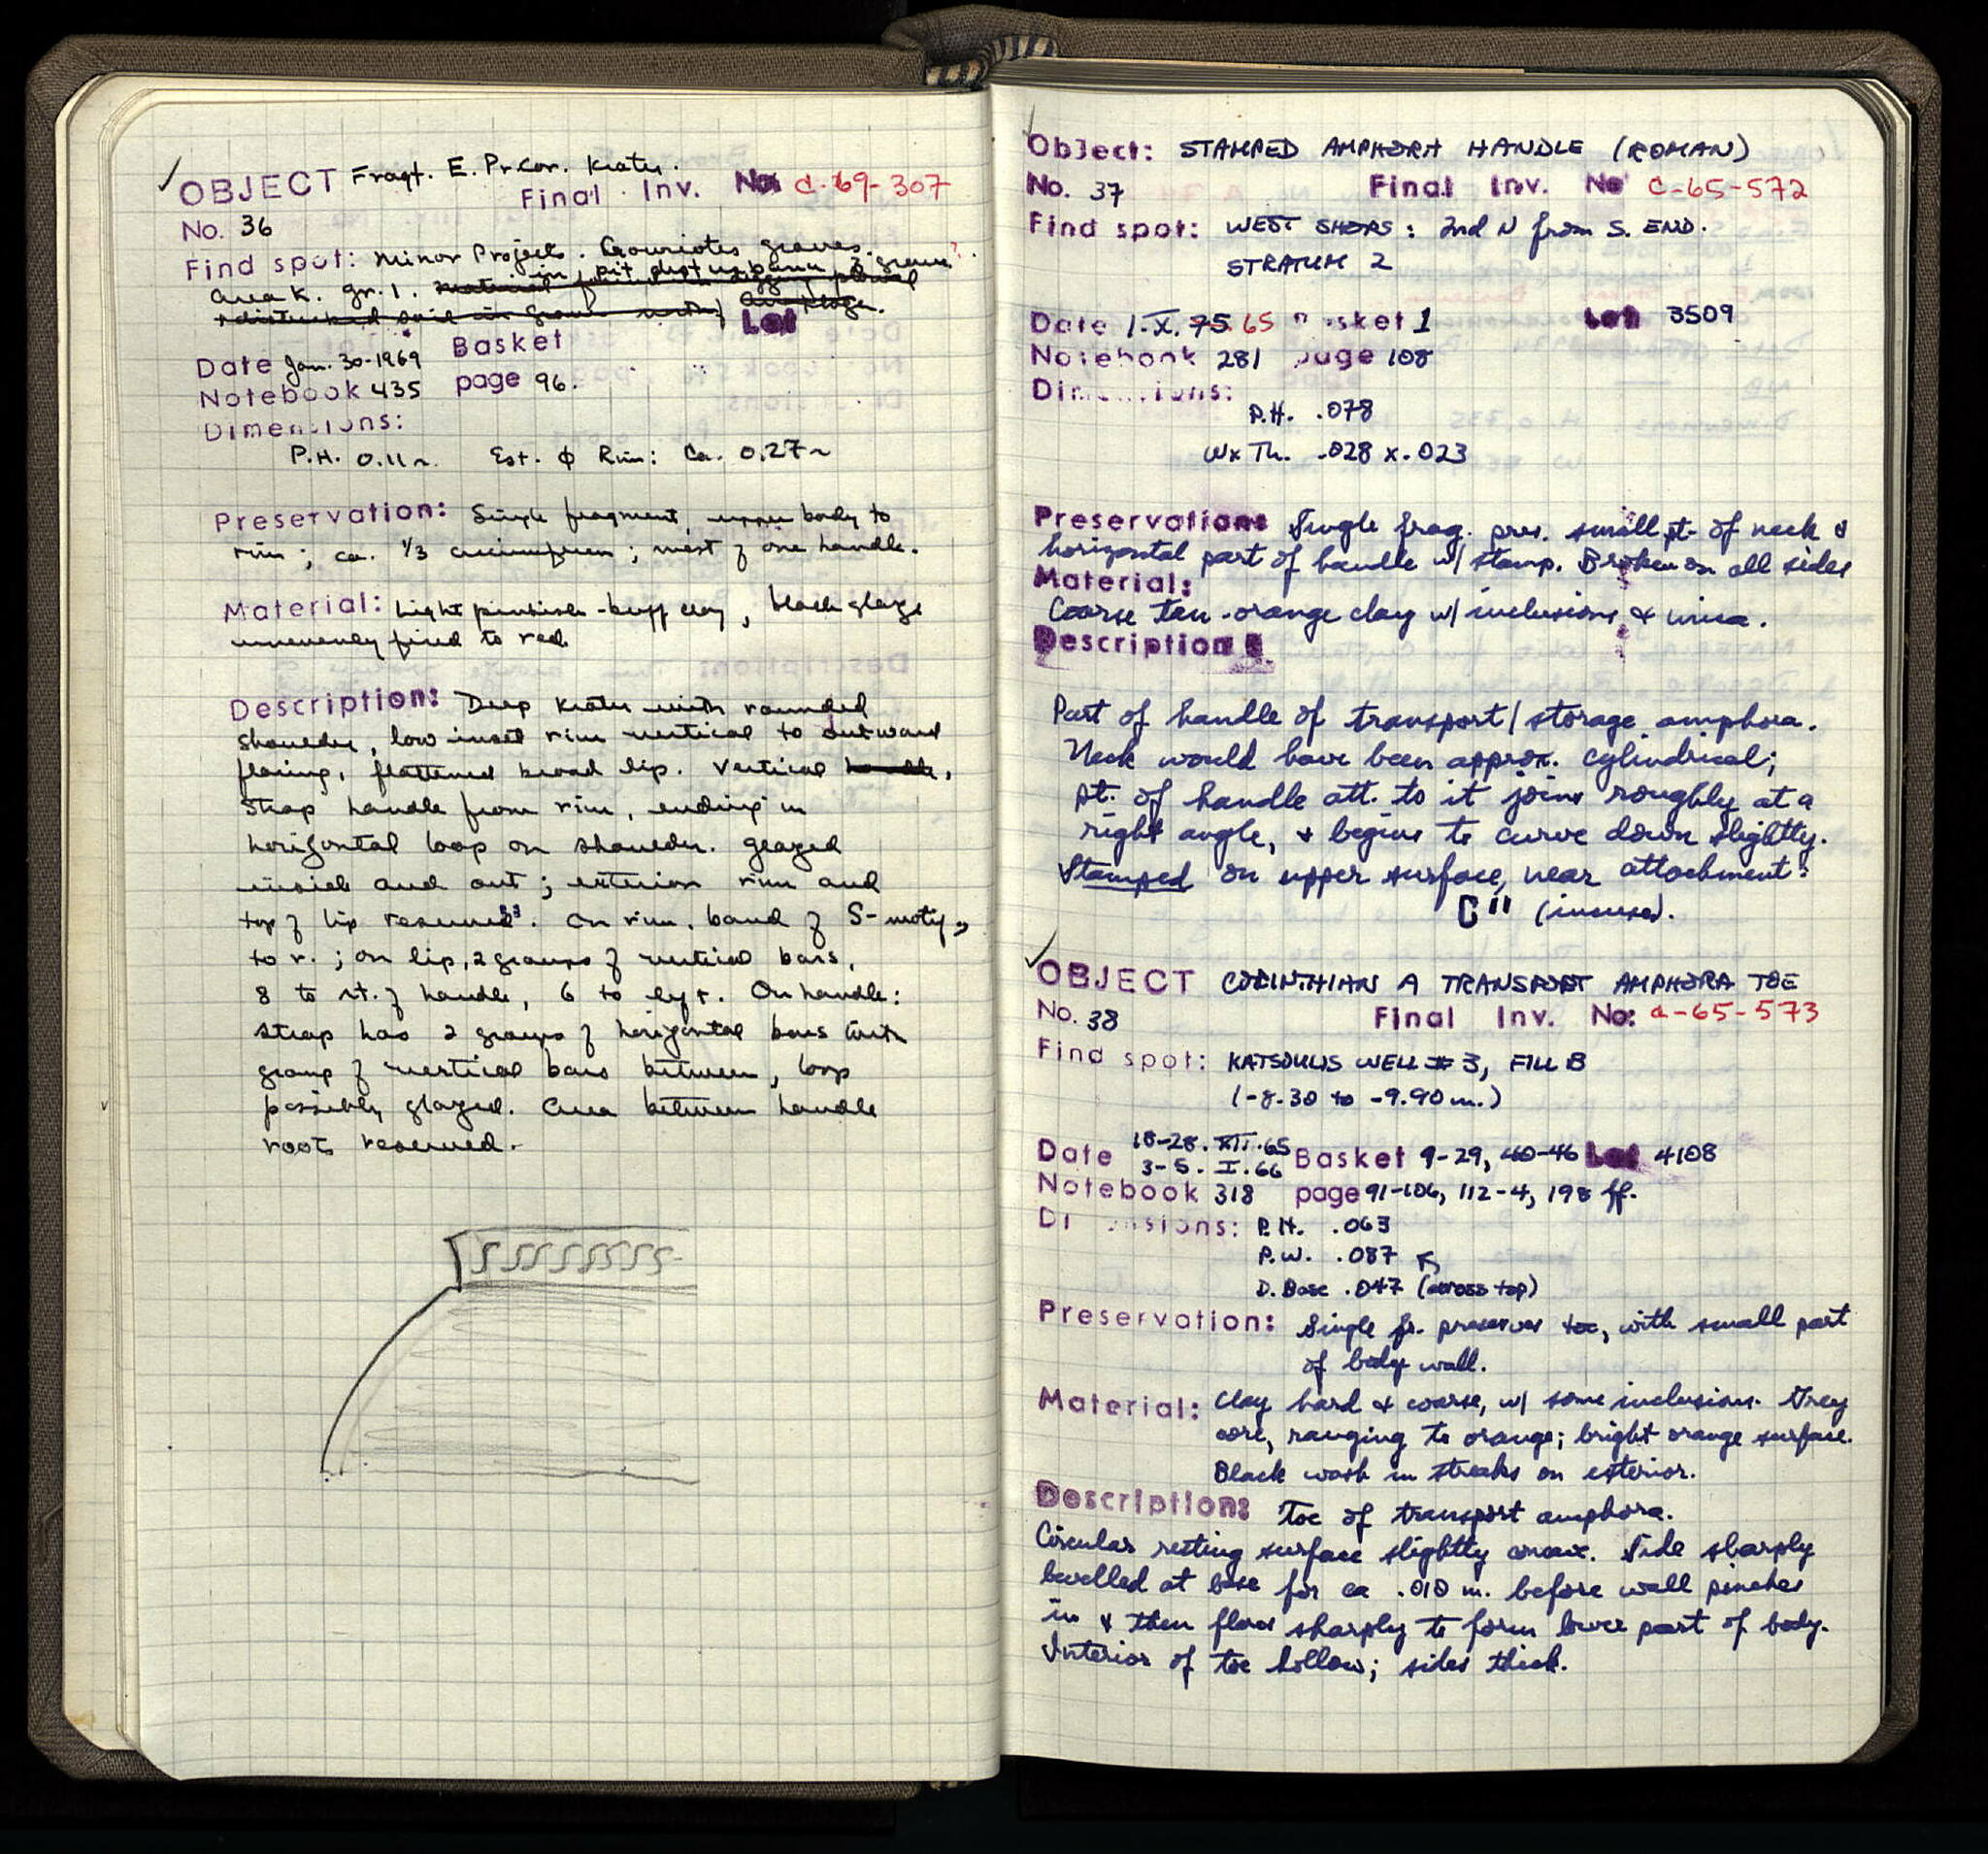 OBJECT Fragt. E. Pr. Cor. Krater.
Final Inv. No. C-69-307
No. 36
Find spot: Minor Project. graves.
Area K. gr. 1.
Lot
Date Jan. 30-1969 Basket
Notebook 435 page 96.
Dimensions:
P.H. 0.11 m. Est. φ Rim: Ca. 0.27 m
Preservation: Single fragment, upper body to
rim; ca. 1/3 circumference; most of one handle.
Material: Light pinkish-buff clay, black glaze
unevenly fired to red
Description: Deep Krater with rounded
shoulder, low inset rim vertical to outward
flaring, flattened broad lip. Vertical handle,
strap handle from rim, ending in
horizontal loop on shoulder. Glazed
inside and out; exterior rim and
top of lip reserved. On rim, band of S-motifs
to r.; on lip, 2 groups of vertical bars,
8 to rt. of handle, 6 to left. On handle:
strap has 2 groups of horizontal bars with
group of vertical bars between, loop
possibly glazed. Area between handle
roots reserved.
Object: STAMPED AMPHORA HANDLE (ROMAN)
No. 37 Final Inv. No C-65-572
Find spot: WEST SHOPS: 2nd N from S. END.
STRATUM 2
Date 1.X.75 65 Basket 1 Lot 3509
Notebook 281 page 108
Dimensions:
P.H. .078
W x Th. .028 x .023
Preservation: Single frag. pres. small pt. of neck &
horizontal part of handle w/ stamp. Broken on all sides
Material:
Coarse tan-orange clay w/ inclusions & mica.
Description:
Part of handle of transport/storage amphora.
Neck would have been approx. cylindrical;
pt. of handle att. to it joins roughly at a
right angle, & begins to curve down slightly.
Stamped on upper surface, near attachment:
C" (incuse).
OBJECT CORINTHIAN A TRANSPORT AMPHORA TOE
No. 38 Final Inv. No: C-65-573
Find spot: KATSOULIS WELL #3, FILL B
(-8.30 to -9.90 m.)
Date 18-28.XII.65
3-5.I.66 Basket 9-29, 40-46 Lot 4108
Notebook 318 page 91-106, 112-4, 198 ff.
Dimensions: P.H. .063
P.W. .087
D. Base .047 (across top)
Preservation: Single fr. preserves toe, with small part
of body wall.
Material: Clay hard & coarse, w/ some inclusions. Grey
core, ranging to orange; bright orange surface.
Black wash in streaks on exterior.
Description: Toe of transport amphora.
Circular resting surface slightly convex. Side sharply
bevelled at base for ca .010 m. before wall pinches
in & then flares sharply to form lower part of body.
Interior of toe hollow; sides thick.